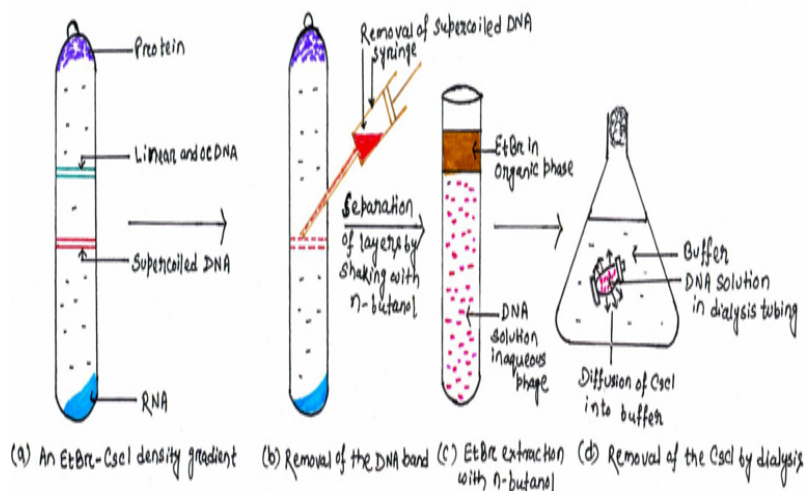 Protein
Linear and oc DNA
Supercoiled DNA
RNA
(a) An EtBr-Cscl density gradient
Removal of supercoiled DNA
syringe
(b) Removal of the DNA band
Separation
of layers by
shaking with
n-butanol
EtBr in
organic phase
DNA
solution
in aqueous
phage
(c) EtBr extraction
with n-butanol
Buffer
DNA solution
in dialysis tubing
Diffusion of Cscl
into buffer
(d) Removal of the Cscl by dialysis